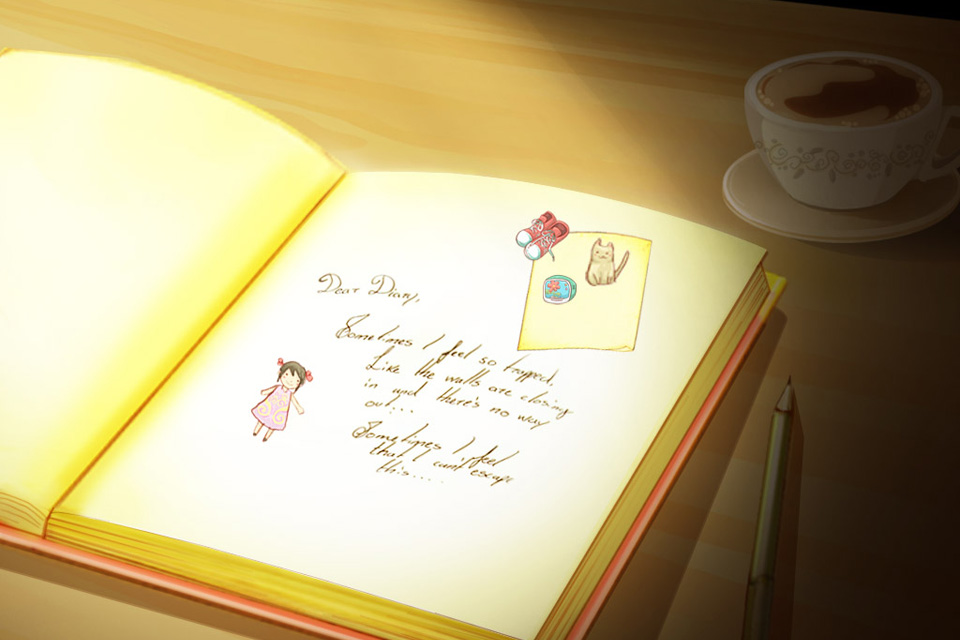 Dear Diary,
Sometimes I feel so trapped.
Like the walls are closing
in and there's no way
out...
Sometimes I feel
that I cant escape
this....